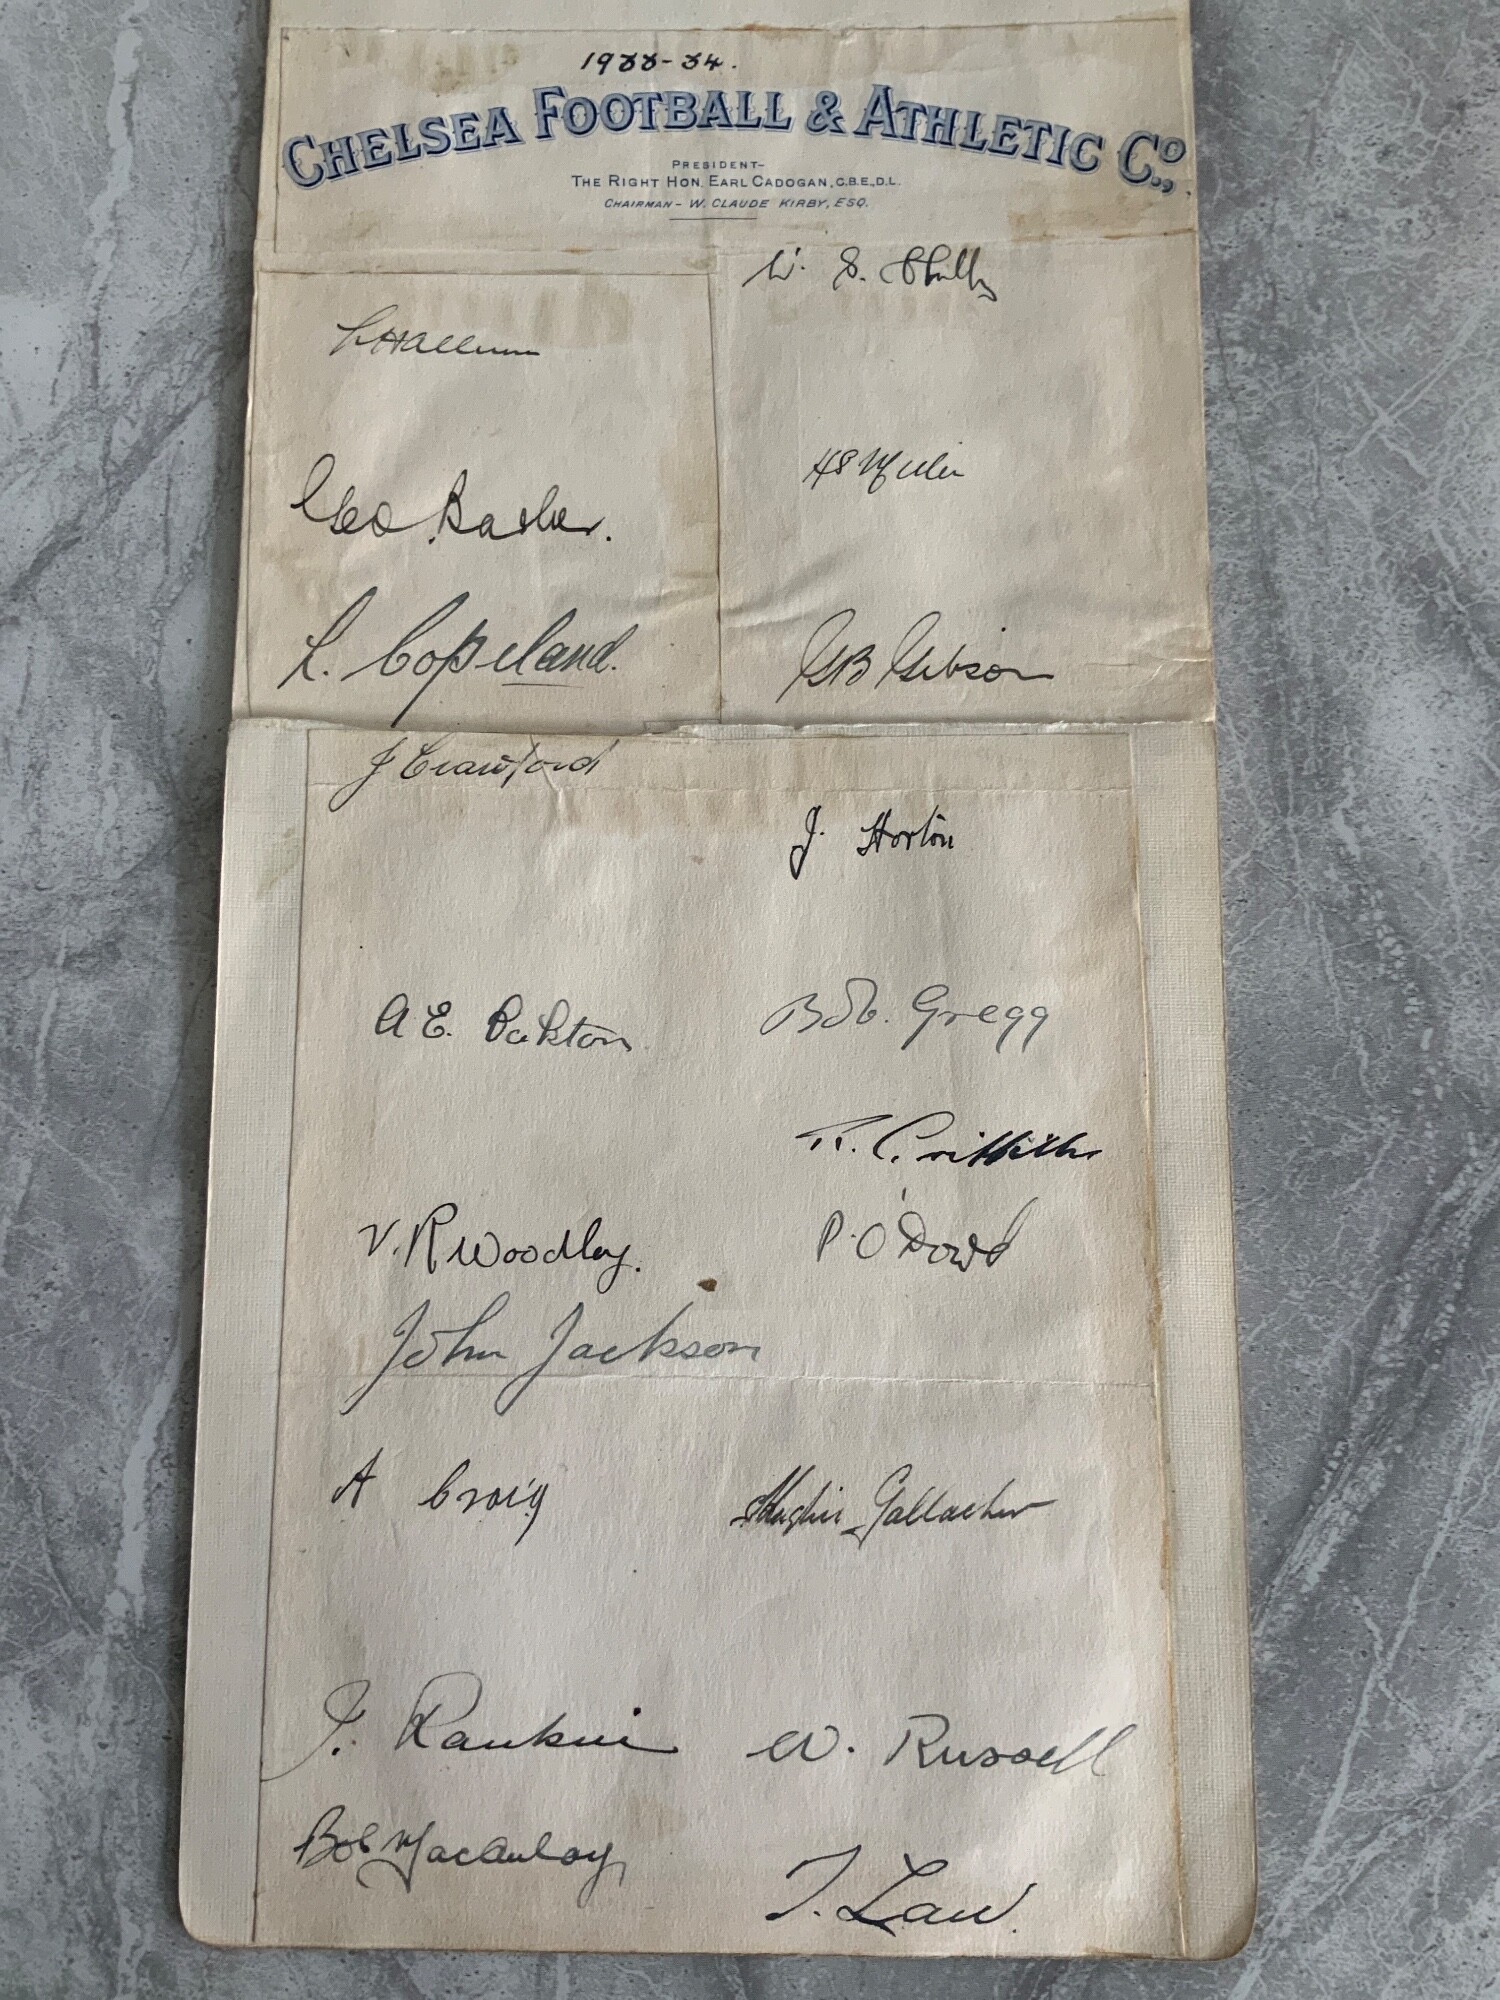 1933-34.
CHELSEA FOOTBALL & ATHLETIC CO.,
PRESIDENT-
THE RIGHT HON. EARL CADOGAN, C.B.E., D.L.
CHAIRMAN - W. CLAUDE KIRBY, ESQ.
W. S.
Hallum
Geo. Barber.
H S Miller
L. Copeland.
G B Gibson
J Crawford
J. Horton
A. E.
Bob. Gregg
R. Griffiths
V. R Woodley.
P. O'Dowd
John Jackson
A Craig
Hughie Gallacher
J. Rankin
W. Russell
Bob Macaulay
T. Law.